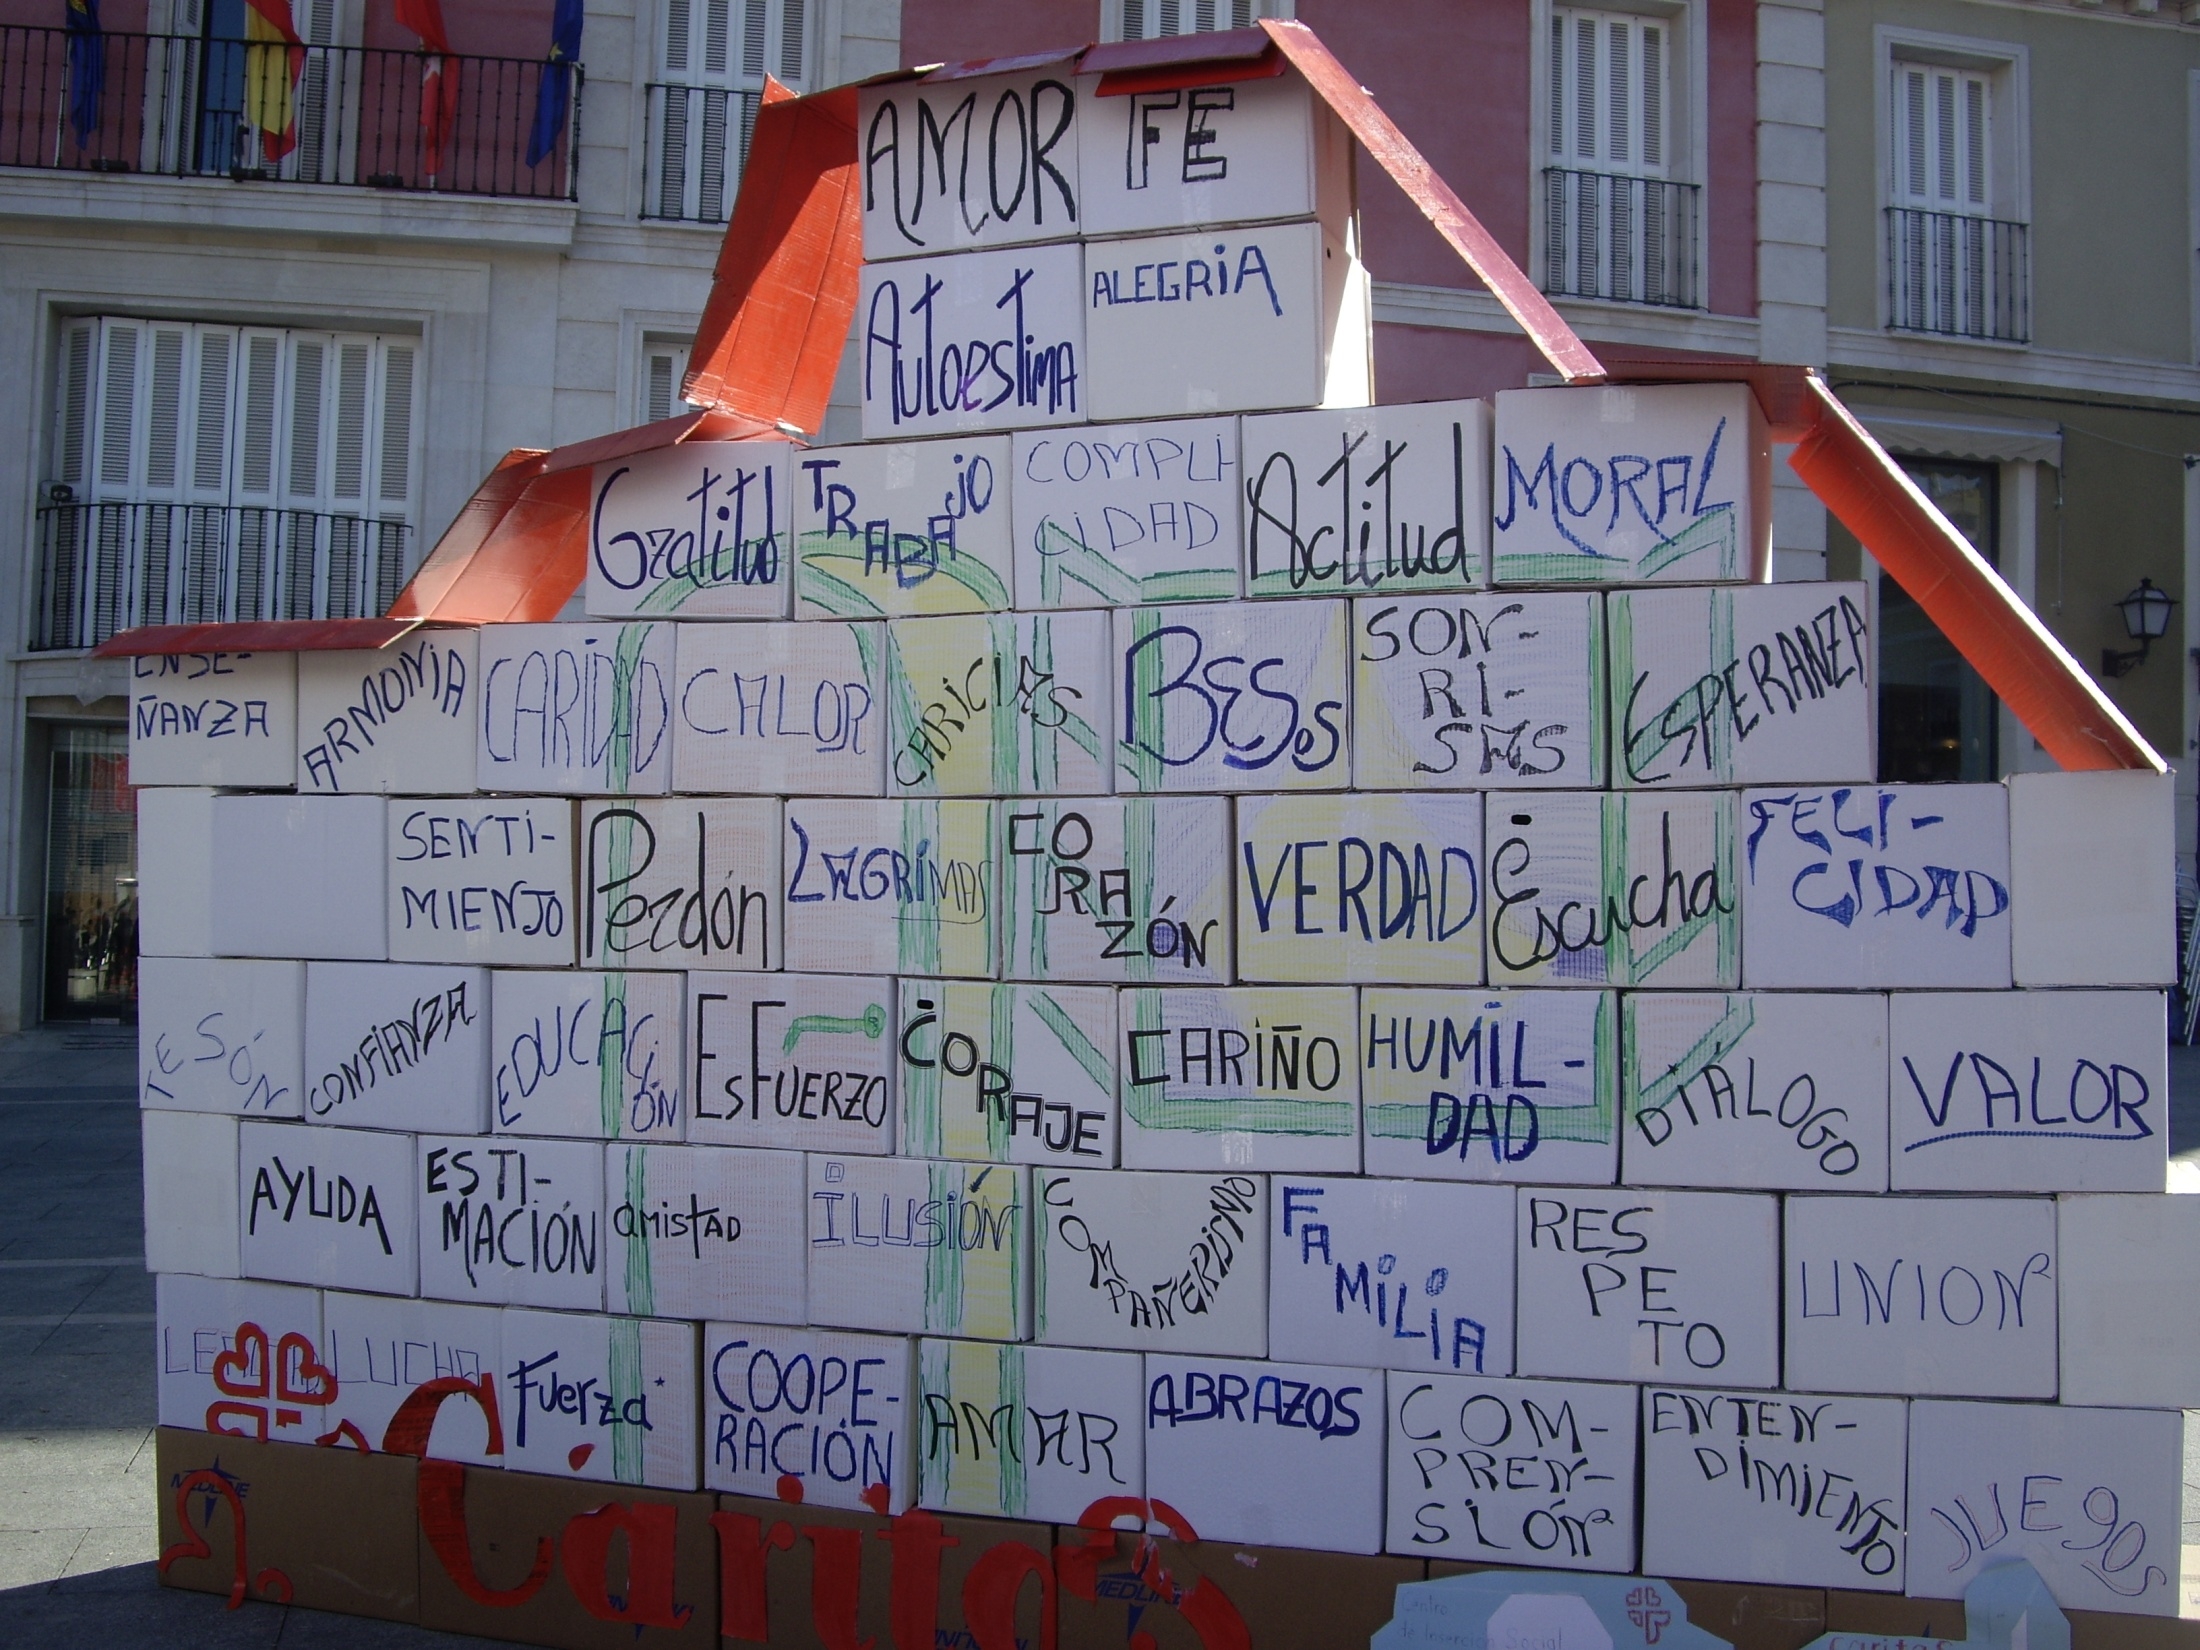 AMOR
FE
Autoestima
ALEGRiA
Gratitud
TRABAjO
COMPLI
CIDAD
Actitud
MORAL
ENSE-
ÑANZA
ARMONiA
CARiDAD
CALOR
CARICIAS
BESos
SON-
RI-
SAS
ESPERANZA
SENTI-
MIENTO
Perdón
LAGRiMAS
CO
RA
ZÓN
VERDAD
Escucha
FELI-
CIDAD
TESÓN
CONFIANZA
EDUCACi
ÓN
ESFUERZO
CORAJE
CARiÑO
HUMIL-
DAD
DIÁLOGO
VALOR
AYUDA
ESTI-
MACIÓN
amistAD
iLUSIÓN
COMPAÑERISMO
FAMiLiA
RES
PE
TO
UNION
LUCHA
Fuerza
COOPE-
RACIÓN
AMAR
ABRAZOS
COM-
PREN-
SIÓN
ENTEN-
DIMIENTO
JUEgOS
MEDLINE
Cáritas
MEDLINE
Centro
de Inserción Social
caritas